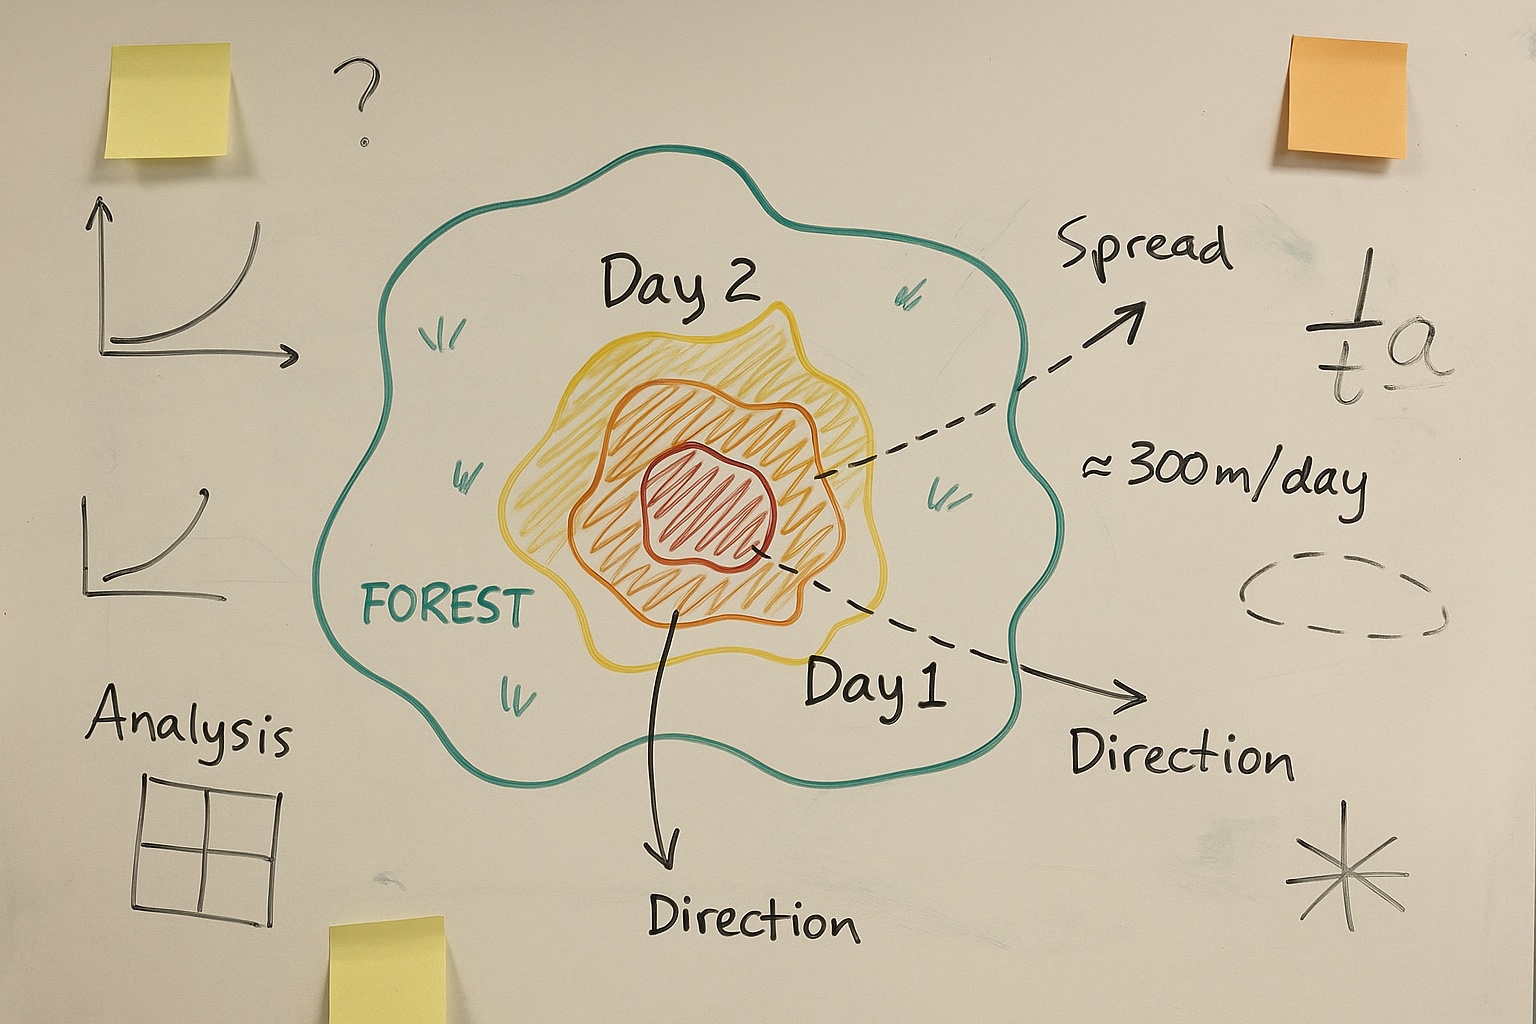 ?
Day 2
Spread
1
t a
≈ 300 m/day
FOREST
Day 1
Analysis
Direction
Direction